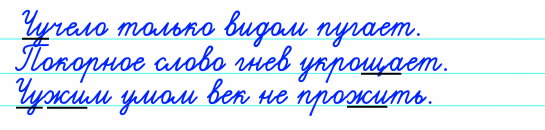 Чучело только видом пугает.
Покорное слово гнев укрощает.
Чужим умом век не прожить.